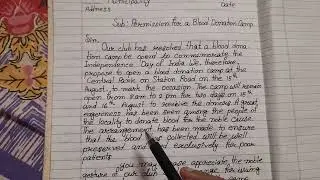 Municipality
Address Date
Sub: Permission for a Blood Donation Camp
Sir,
Our club has resolved that a blood dona-
tion camp be opened to commemorate the
Independence Day of India. We, therefore,
propose to open a blood donation camp at the
Central Bank on Station Road on the 15th
August, to mark the occasion. The camp will remain
open from 9am to 2 pm for two days on 15th
and 16th August to receive the donors. A great
eagerness has been seen among the people of
the locality to donate blood for the noble cause.
The arrangement has been made to ensure
that the blood collected will be well
preserved and exclusively for poor
patients.
you may please appreciate, the noble
gesture of our club arrange for using